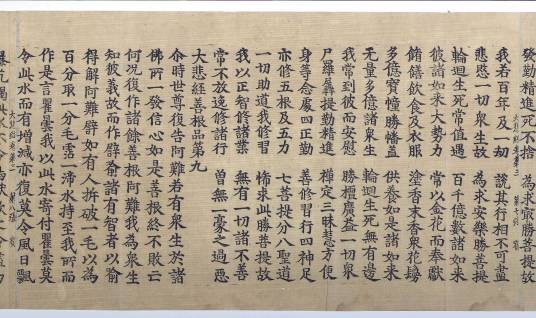 發勤精進死不捨　為求寂勝菩提故
我若百年及一劫　說其行相不可盡
悲愍一切衆生故　為求安樂勝菩提
輪迴生死常值遇　百千億數諸如來
彼諸如來大勢力　常以金花而奉獻
餚饍飲食及衣服　塗香末香衆花鬘
多億寶幢勝幡蓋　供養如是諸如來
无量多億諸衆生　輪迴生死無有邊
我常到彼而安慰　勝檀廣益一切衆
尸羅羼提勤精進　禪定三昧惠方便
身等念處四正勤　善修習行四神足
亦修五根及五力　七菩提分八聖道
一切助道我修習　悕求此勝菩提故
我以正智修諸業　無有一切諸不善
常不放逸修諸行　曾無一豪之過惡
大悲經善根品第九
尒時世尊復告阿難若有衆生於諸
佛所一發信心如是善根終不敗亡
何況復作諸餘善根阿難我為衆生
知彼義故而作譬喻諸有智者以喻
得解阿難譬如有人拆破一毛以為
百分取一分毛霑一渧水持至我所而
作是言瞿曇我以此水寄付瞿曇莫
令此水而有增減亦復莫令風日飄